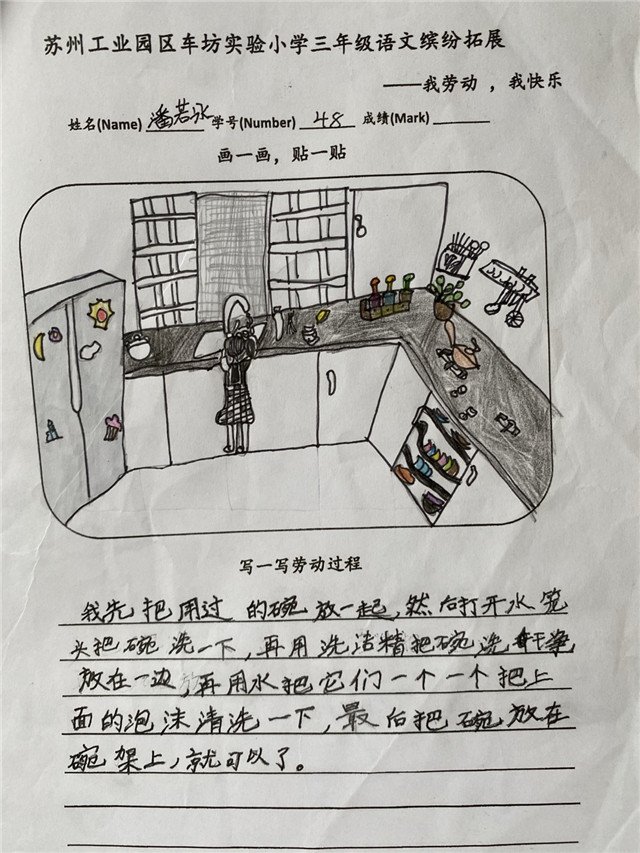 苏州工业园区车坊实验小学三年级语文缤纷拓展
——我劳动，我快乐
姓名(Name) 潘若泳 学号(Number) 48 成绩(Mark)
画一画，贴一贴
写一写劳动过程
我先把用过的碗放一起，然后打开水笼
头把碗洗一下，再用洗洁精把碗洗干净，
放在一边，再用水把它们一个一个把上
面的泡沫清洗一下，最后把碗放在
碗架上，就可以了。